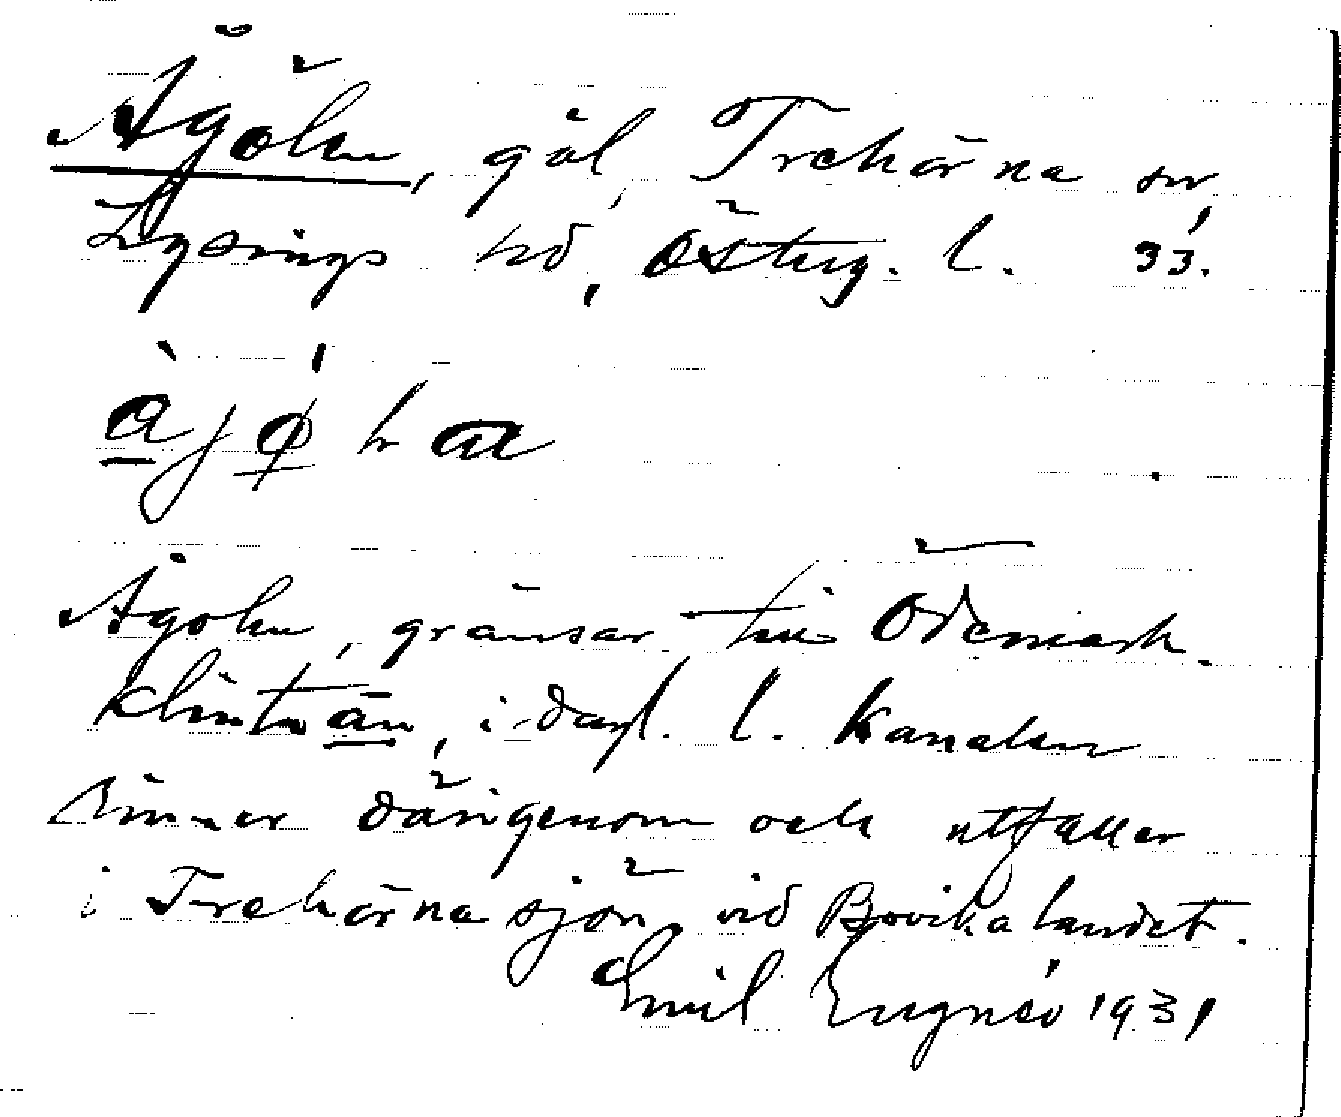 Ågölen, göl, Trehörna sn,
Lysings hd, Österg. l. 33.
Ågölen, gränsar till Ödemark.
i dagl. l. Kanalen
rinner därigenom och utfaller
i Trehörnasjön vid Bovikalandet.
Emil Lugnéo 1931